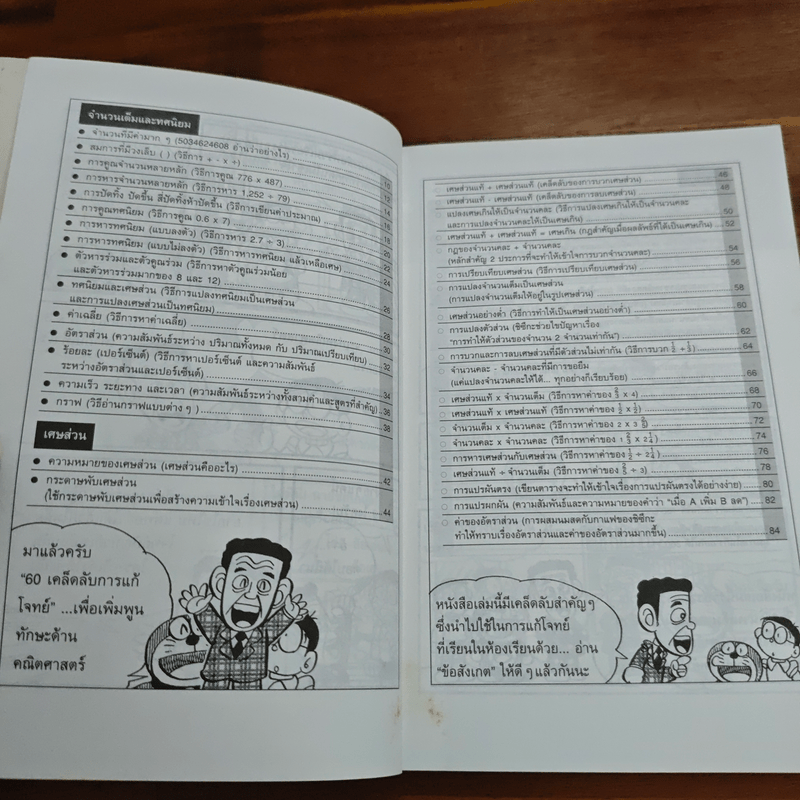 จำนวนเต็มและทศนิยม
● จำนวนที่มีค่ามาก ๆ (5034624608 อ่านว่าอย่างไร)
● สมการที่มีวงเล็บ ( ) (วิธีการ + - x ÷) 10
● การคูณจำนวนหลายหลัก (วิธีการคูณ 776 x 487) 12
● การหารจำนวนหลายหลัก (วิธีการหาร 1,252 ÷ 79) 14
● การปัดทิ้ง ปัดขึ้น สี่ปัดทิ้งห้าปัดขึ้น (วิธีการเขียนค่าประมาณ) 16
● การคูณทศนิยม (วิธีการคูณ 0.6 x 7) 18
● การหารทศนิยม (แบบลงตัว) (วิธีการหาร 2.7 ÷ 3) 20
● การหารทศนิยม (แบบไม่ลงตัว) (วิธีการหารทศนิยม แล้วเหลือเศษ) 22
● ตัวหารร่วมและตัวคูณร่วม (วิธีการหาตัวคูณร่วมน้อย
และตัวหารร่วมมากของ 8 และ 12) 24
● ทศนิยมและเศษส่วน (วิธีการแปลงทศนิยมเป็นเศษส่วน
และการแปลงเศษส่วนเป็นทศนิยม)
● ค่าเฉลี่ย (วิธีการหาค่าเฉลี่ย) 28
● อัตราส่วน (ความสัมพันธ์ระหว่าง ปริมาณทั้งหมด กับ ปริมาณเปรียบเทียบ) 30
● ร้อยละ (เปอร์เซ็นต์) (วิธีการหาเปอร์เซ็นต์ และความสัมพันธ์ 32
ระหว่างอัตราส่วนและเปอร์เซ็นต์)
● ความเร็ว ระยะทาง และเวลา (ความสัมพันธ์ระหว่างทั้งสามค่าและสูตรที่สำคัญ) 34
● กราฟ (วิธีอ่านกราฟแบบต่าง ๆ ) 36
38
เศษส่วน
● ความหมายของเศษส่วน (เศษส่วนคืออะไร)
● กระดาษพับเศษส่วน 42
(ใช้กระดาษพับเศษส่วนเพื่อสร้างความเข้าใจเรื่องเศษส่วน) 44
มาแล้วครับ
"60 เคล็ดลับการแก้
โจทย์" ...เพื่อเพิ่มพูน
ทักษะด้าน
คณิตศาสตร์
เศษส่วนแท้ + เศษส่วนแท้ (เคล็ดลับของการบวกเศษส่วน) 46
เศษส่วนแท้ - เศษส่วนแท้ (เคล็ดลับของการลบเศษส่วน) 48
แปลงเศษเกินให้เป็นจำนวนคละ (วิธีการแปลงเศษเกินให้เป็นจำนวนคละ
และการแปลงจำนวนคละให้เป็นเศษเกิน) 50
○ เศษส่วนแท้ + เศษส่วนแท้ = เศษเกิน (กฎสำคัญเมื่อผลลัพธ์ที่ได้เป็นเศษเกิน) 52
○ กฎของจำนวนคละ + จำนวนคละ
(หลักสำคัญ 2 ประการที่จะทำให้เข้าใจการบวกจำนวนคละ) 54
○ การเปรียบเทียบเศษส่วน (วิธีการเปรียบเทียบเศษส่วน) 56
○ การแปลงจำนวนเต็มเป็นเศษส่วน
(การแปลงจำนวนเต็มให้อยู่ในรูปเศษส่วน) 58
○ เศษส่วนอย่างต่ำ (วิธีการทำให้เป็นเศษส่วนอย่างต่ำ) 60
○ การแปลงตัวส่วน (ชิซึกะช่วยไขปัญหาเรื่อง
"การทำให้ตัวส่วนของจำนวน 2 จำนวนเท่ากัน") 62
○ การบวกและการลบเศษส่วนที่มีตัวส่วนไม่เท่ากัน (วิธีการบวก 64
○ จำนวนคละ - จำนวนคละที่มีการขอยืม
(แค่แปลงจำนวนคละให้ได้... ทุกอย่างก็เรียบร้อย) 66
○ เศษส่วนแท้ x จำนวนเต็ม (วิธีการหาค่าของ x 4) 68
○ เศษส่วนแท้ x เศษส่วนแท้ (วิธีการหาค่าของ 70
○ จำนวนเต็ม x จำนวนคละ (วิธีการหาค่าของ 72
○ จำนวนคละ x จำนวนคละ (วิธีการหาค่าของ 74
○ การหารเศษส่วนกับเศษส่วน (วิธีการหาค่าของ 76
○ เศษส่วนแท้ ÷ จำนวนเต็ม (วิธีการหาค่าของ ÷ 3) 78
○ การแปรผันตรง (เขียนตารางจะทำให้เข้าใจเรื่องการแปรผันตรงได้อย่างง่าย) 80
○ การแปรผกผัน (ความสัมพันธ์และความหมายของคำว่า "เมื่อ A เพิ่ม B ลด") 82
○ ค่าของอัตราส่วน (การผสมนมสดกับกาแฟของชิซึกะ
ทำให้ทราบเรื่องอัตราส่วนและค่าของอัตราส่วนมากขึ้น) 84
หนังสือเล่มนี้มีเคล็ดลับสำคัญ ๆ
ซึ่งนำไปใช้ในการแก้โจทย์
ที่เรียนในห้องเรียนด้วย... อ่าน
"ข้อสังเกต" ให้ดี ๆ แล้วกันนะ